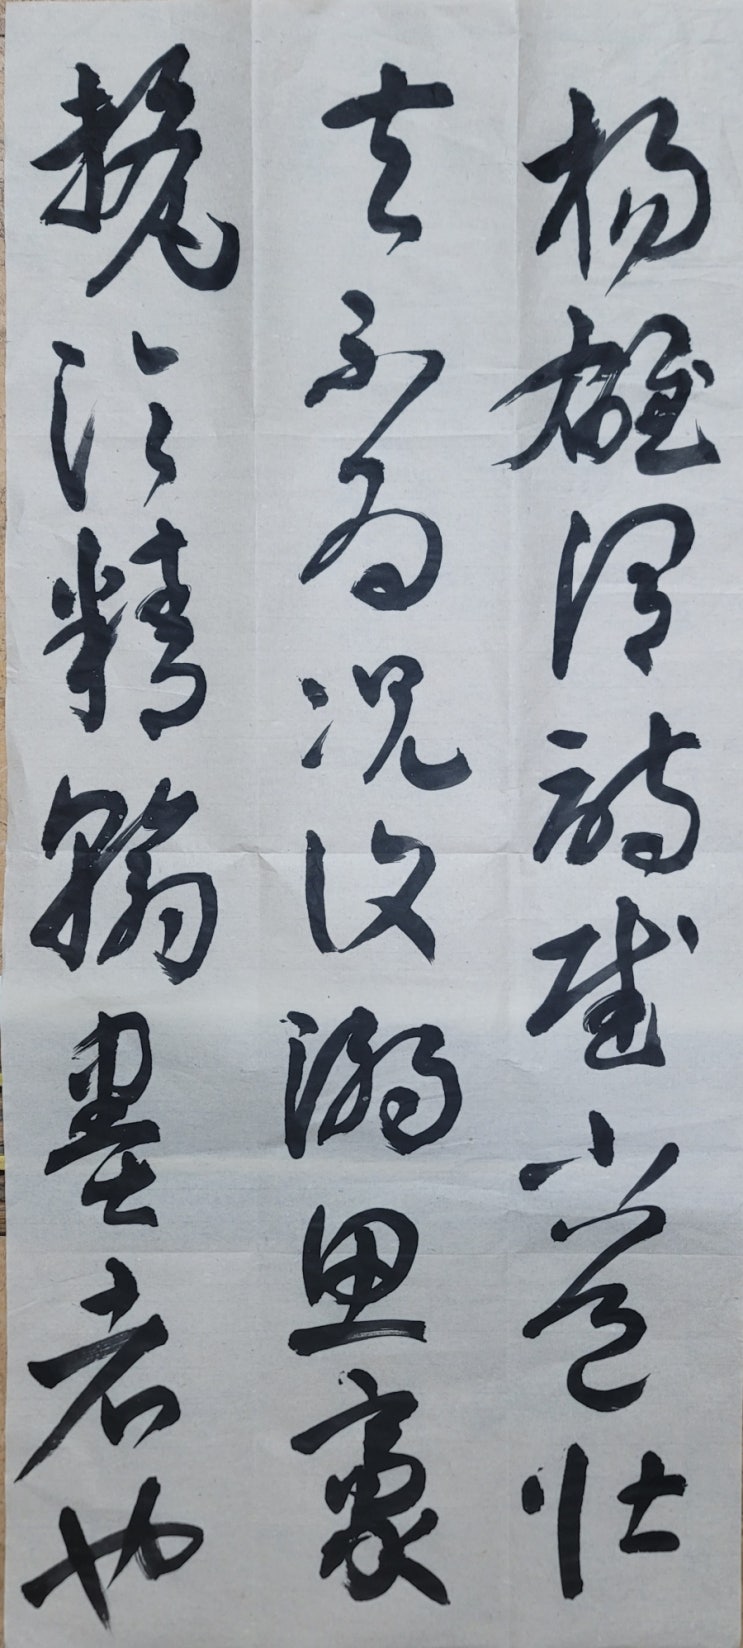 楊雄謂詩賦小道壯
夫不為況復溺思豪
釐淪精翰墨者也